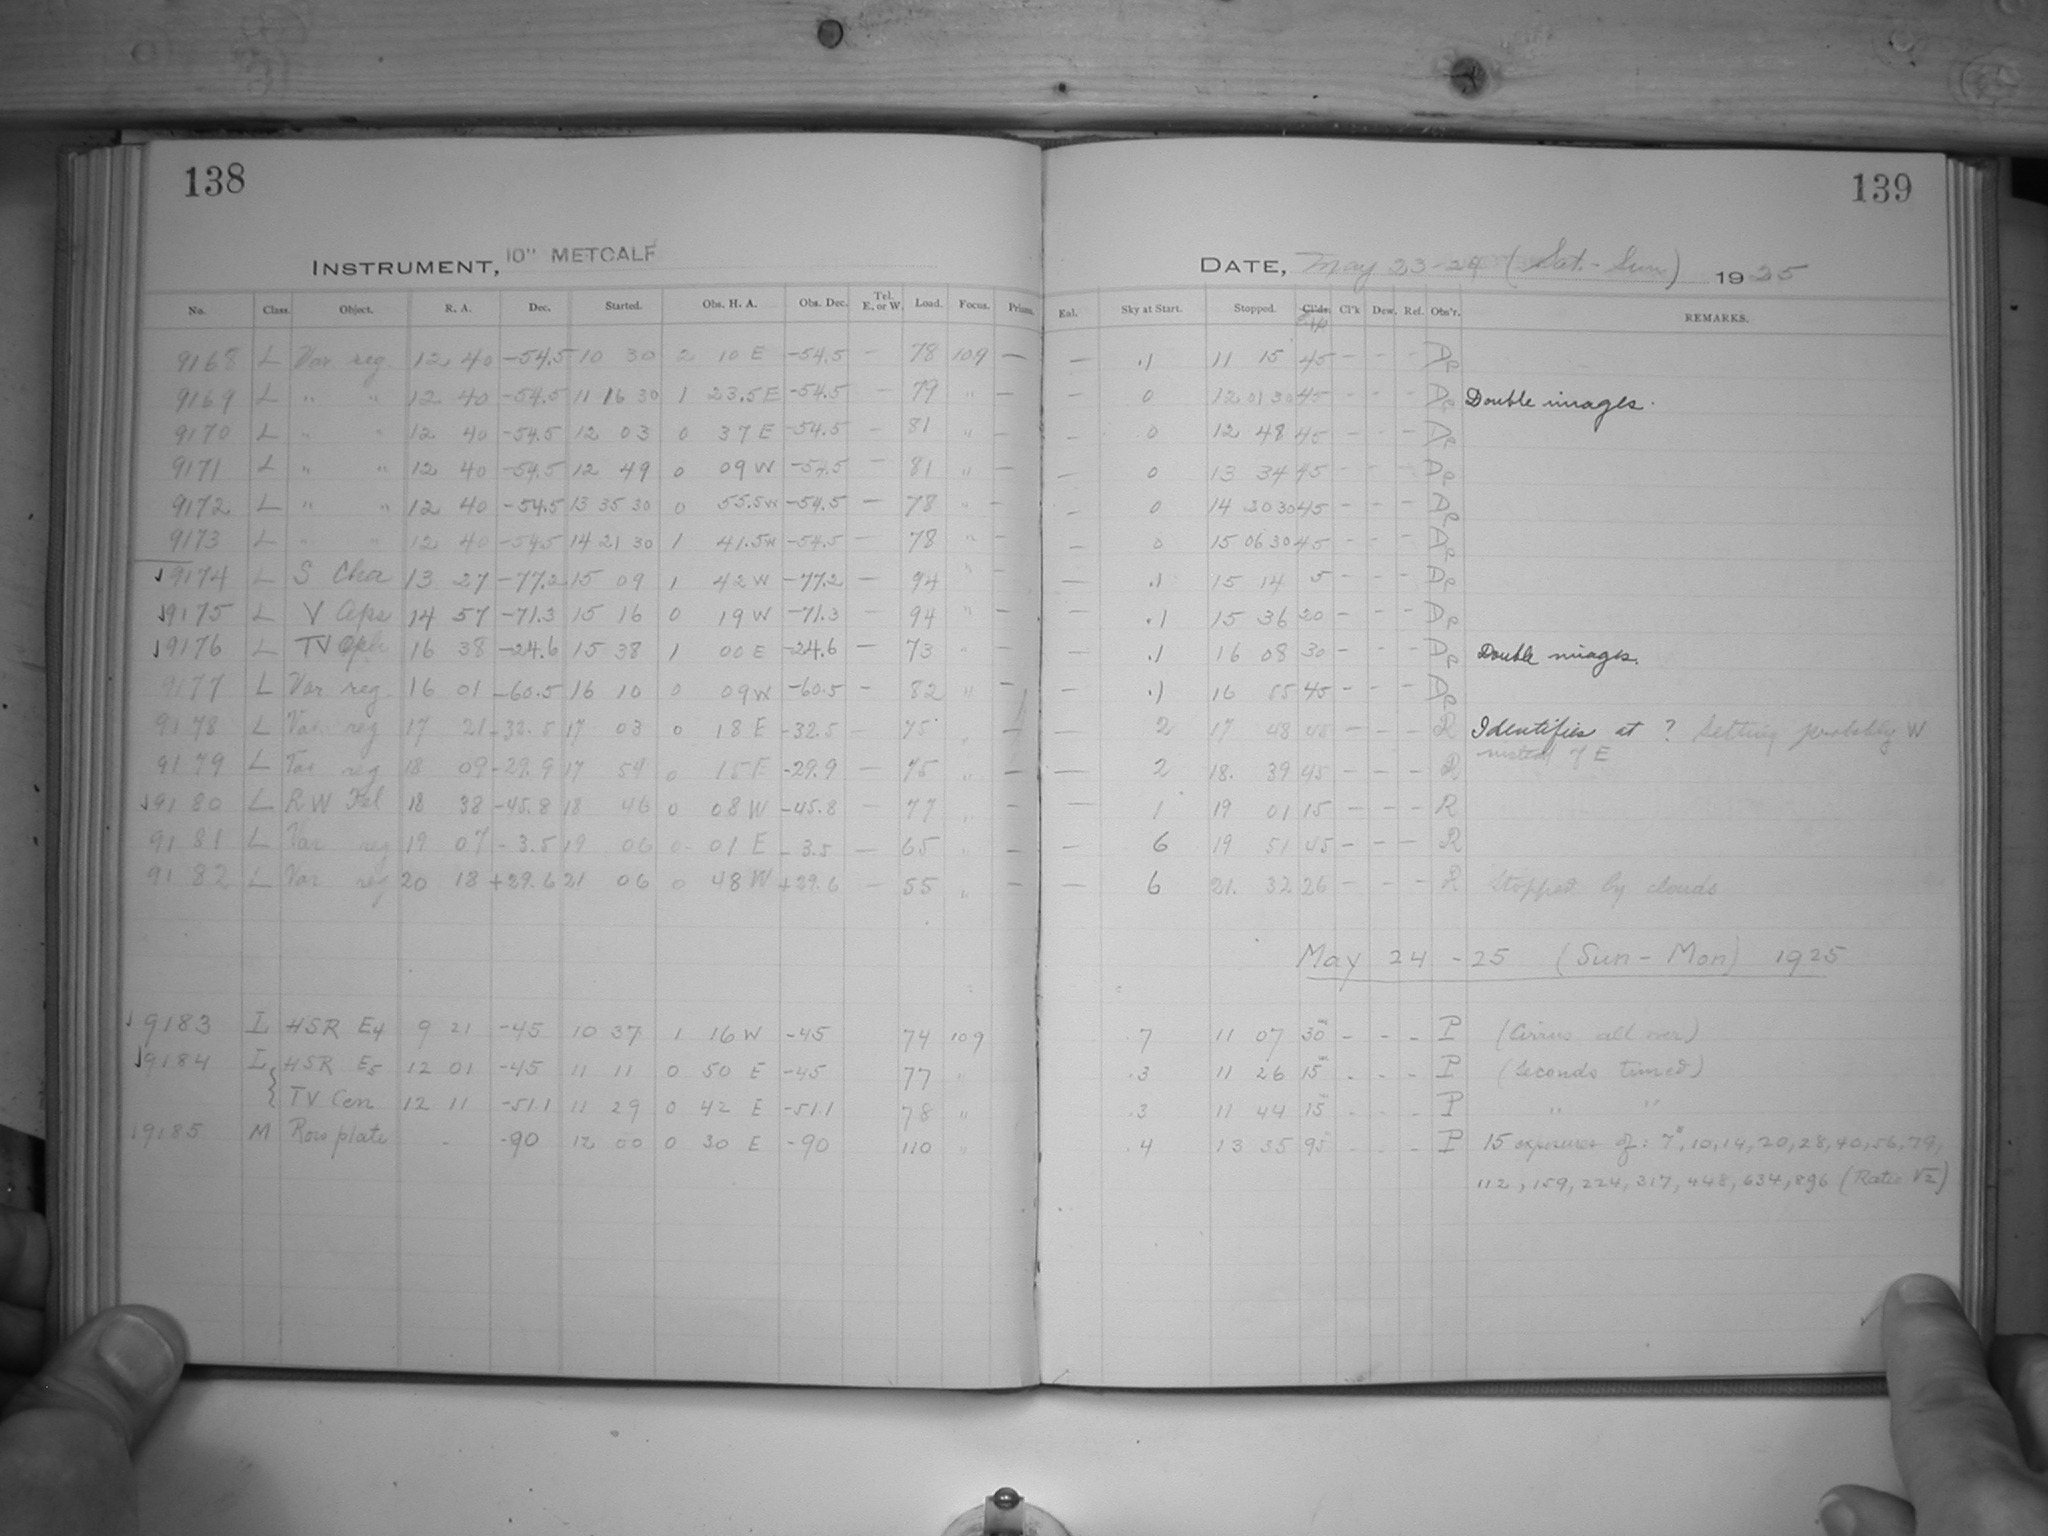 138
139
INSTRUMENT, 10" METCALF
DATE, May 23-24 (Sat. - Sun) 1925
No. Class. Object. R. A. Dec. Started. Obs. H. A. Obs. Dec. Tel. E. or W. Load. Focus. Prisms. Eal. Sky at Start. Stopped. Cl'ds. Exp Cl'k Dew. Ref. Obs'r. REMARKS.
9168 L Var reg 12 40 -54.5 10 30 2 10 E -54.5 - 78 10.9 - - .1 11 15 45 - - - Dp
9169 L " " 12 40 -54.5 11 16 30 1 23.5 E -54.5 - 79 " - - 0 12 01 30 45 - - - Dp Double images.
9170 L " " 12 40 -54.5 12 03 0 37 E -54.5 - 81 " - - 0 12 48 45 - - - Dp
9171 L " " 12 40 -54.5 12 49 0 09 W -54.5 - 81 " - - 0 13 34 45 - - - Dp
9172 L " " 12 40 -54.5 13 35 30 0 55.5 W -54.5 - 78 " - - 0 14 20 30 45 - - - Dp
9173 L " " 12 40 -54.5 14 21 30 1 41.5 W -54.5 - 78 " - - 0 15 06 30 45 - - - Dp
√9174 L S Cha 13 27 -77.2 15 09 1 42 W -77.2 - 94 " - - .1 15 14 5 - - - Dp
√9175 L V Aps 14 57 -71.3 15 16 0 19 W -71.3 - 94 " - - .1 15 36 20 - - - Dp
√9176 L TV Oph 16 38 -24.6 15 38 1 00 E -24.6 - 73 " - - .1 16 08 30 - - - Dp Double images.
9177 L Var reg 16 01 -60.5 16 10 0 09 W -60.5 - 82 " - - .1 16 55 45 - - - Dp
9178 L Var reg 17 21 -32.5 17 03 0 18 E -32.5 - 75 " - - 2 17 48 45 - - - R Identifies at ? Setting probably W
instead of E
9179 L Var reg 18 09 -29.9 17 54 0 15 E -29.9 - 75 " - - 2 18. 39 45 - - - R
√9180 L RW Tel 18 38 -45.8 18 46 0 08 W -45.8 - 77 " - - 1 19 01 15 - - - R
9181 L Var reg 19 07 -3.5 19 06 0 01 E -3.5 - 65 " - - 6 19 51 45 - - - R
9182 L Var reg 20 18 +29.6 21 06 0 48 W +29.6 - 55 " - - 6 21. 32 26 - - - R Stopped by clouds
May 24 - 25 (Sun - Mon) 1925
√9183 L HSR E4 9 21 -45 10 37 1 16 W -45 74 10.9 .7 11 07 30 - - - P (Cirrus all over)
√9184 L HSR E5 12 01 -45 11 11 0 50 E -45 77 " .3 11 26 15 - - - P (Seconds timed)
TV Cen 12 11 -51.1 11 29 0 42 E -51.1 78 " .3 11 44 15 - - - P " "
19185 M Ross plate - -90 12 00 0 30 E -90 110 " .4 13 35 95 - - - P 15 exposures of: 7s, 10, 14, 20, 28, 40, 56, 79,
112, 159, 224, 317, 448, 634, 896 (Ratio √2)